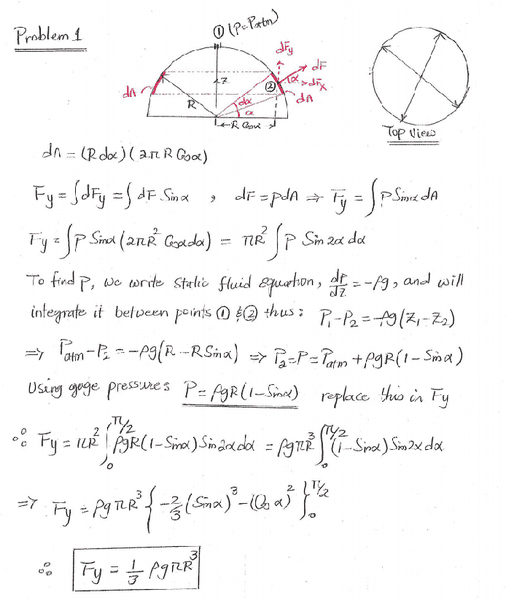 Problem 1
① (P=Patm)
dFy
dF
α
dFx
②
dA
z
dA
R
dα
α
R Cosα
Top View
dA = (R dα)(2π R Cosα)
Fy = ∫dFy = ∫ dF Sinα , dF = pdA ⇒ Fy = ∫ P Sinα dA
Fy = ∫ P Sinα (2πR² Cosα dα) = πR² ∫ P Sin 2α dα
To find P, we write static fluid equation, dp/dz = -ρg, and will
integrate it between points ① & ② thus: P₁-P₂ = -ρg(Z₁-Z₂)
⇒ Patm-P₂ = -ρg(R-R Sinα) ⇒ P₂=P=Patm + ρgR(1-Sinα)
Using gage pressures P = ρgR(1-Sinα) replace this in Fy
∴ Fy = πR² ∫₀^π/2 ρgR(1-Sinα) Sin2α dα = ρgπR³ ∫₀^π/2 (1-Sinα) Sin2α dα
⇒ Fy = ρgπR³ { -2/3 (Sinα)³ - (Cosα)² }₀^π/2
∴ Fy = 1/3 ρgπR³